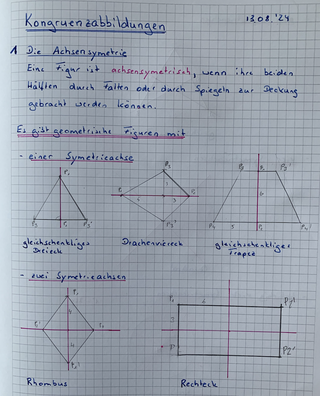 Kongruenzabbildungen 13.08.'24
1 Die Achsensymetrie
Eine Figur ist achsensymetrisch, wenn ihre beiden
Hälften durch Falten oder durch Spiegeln zur Deckung
gebracht werden können.
Es gibt geometrische Figuren mit
- einer Symetrieachse
gleichschenkliges Drachenviereck gleichschenkliges
Dreieck Trapez
- zwei Symetrieachsen
Rhombus Rechteck